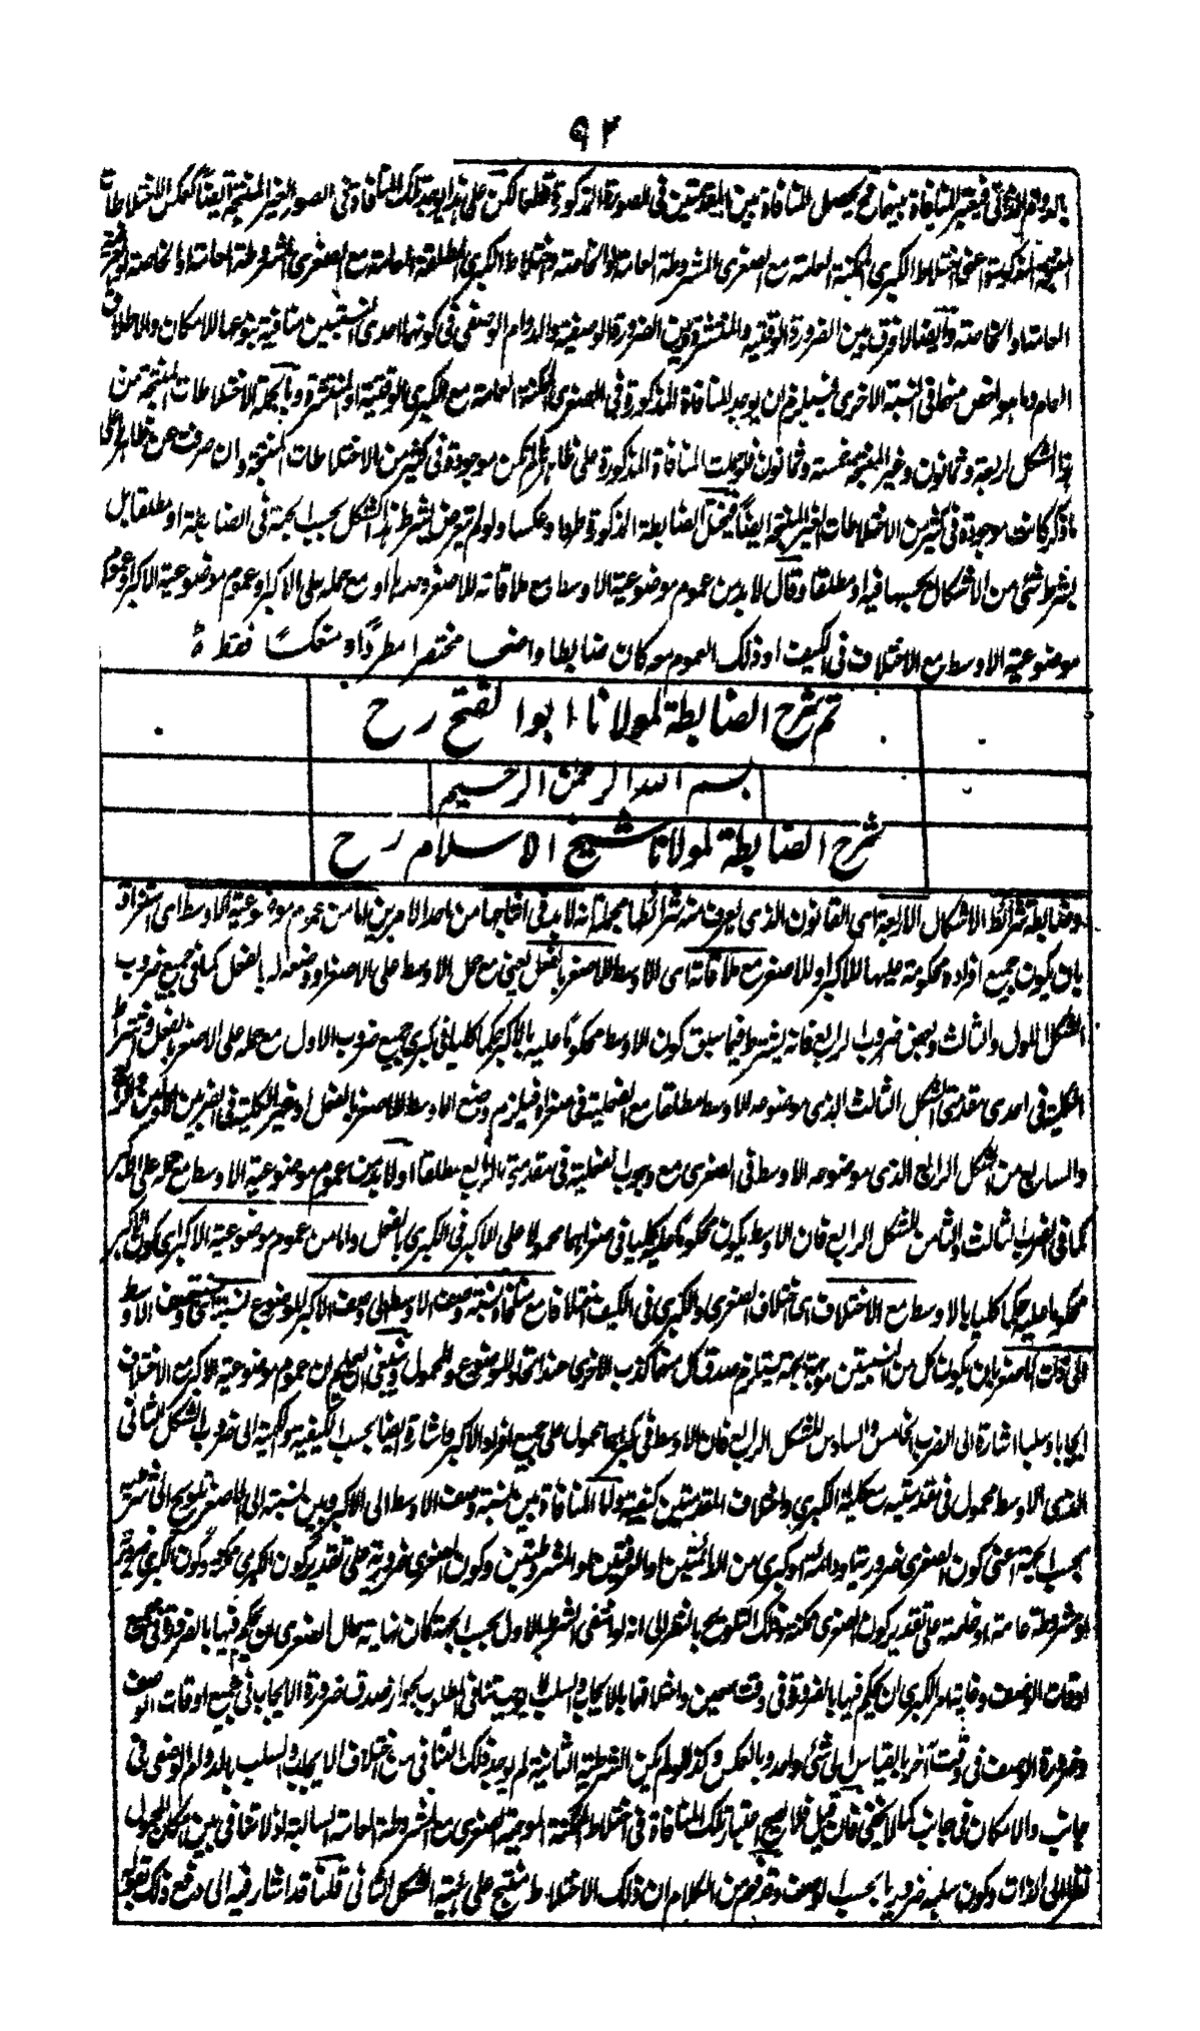 ٩٢
بالدوام الذاتي فيعتبر المنافاة بينهما نعم يحصل المنافاة بين المقدمتين في الصورة المذكورة قطعا لكن على هذا يوجد تلك المنافاة في الصور الغير المنتجة ايضا كعكس الاختلاطات
المذكورة اعنى اختلاط الكبرى الممكنة العامة مع الصغرى المشروطة العامة او الخاصة واختلاط الكبرى المطلقة العامة مع الصغرى المشروطة العامة او الخاصة او العرفية
العامة او الخاصة وايضا لا فرق بين الضرورة الوقتية والمنتشرة وبين الضرورة الوصفية والدوام الوصفي في كونها احدى النسبتين منافية بنوعها للامكان والاطلاق
العام وما هو اخص منها في النسبة الاخرى فيلزم ان يوجد المنافاة المذكورة في الصغرى الممكنة العامة مع الكبرى الوقتية او المنتشرة وبالجملة الاختلاطات المنتجة من
هذا الشكل اربعة وثمانون وغير المنتجة خمسة وثمانون فلو حملت المنافاة المذكورة على ظاهرها لم تكن موجودة في كثير من الاختلاطات المنتجة وان صرف عن ظاهرها الى
ما ذكر كانت موجودة في كثير من الاختلاطات الغير المنتجة ايضا فيختل الضابطة المذكورة طردا وعكسا ولو لم يتعرض لشرط هذا الشكل بحسب الجهة في الضابطة او مطلقا بل
بشرط شئ من الاشكال بحسبها فيه او مطلقا وقال لا بد من عموم موضوعية الاوسط مع ملاقاته للاصغر وحدها او مع حمله على الاكبر او عموم موضوعية الاكبر او عموم
موضوعية الاوسط مع الاختلاف في الكيف او ذلك العموم معه كان ضابطا واضحا مختصرا مطردًا ومنعكسًا فقط ة
تم شرح الضابطة لمولانا ابو الفتح رح
بسم الله الرحمن الرحيم
شرح الضابطة لمولانا شيخ الاسلام رح
وضابطة شرائط الاشكال الاربعة اى القانون الذى يعرف منه شرائطها مجملة انه لا بد في انتاجها من احد الامرين اما من عموم موضوعية الاوسط اى استغراق
بان يكون جميع افراده محكومة عليها للاكبر او للاصغر مع ملاقاته اى الاوسط للاصغر بالفعل يعنى مع حمل الاوسط على الاصغر او وضعه له بالفعل كما في جميع ضروب
الشكل الاول والثالث وبعض ضروب الرابع فانه يشترط فيما سبق كون الاوسط محكومًا عليه بالاكبر حكما كليا في كبرى جميع ضروب الاول مع حمله على الاصغر بالفعل واشتراط
الكلية في احدى مقدمتى الشكل الثالث الذى موضوعه الاوسط مطلقا مع الفعلية في صغراه فيلزم وضع الاوسط للاصغر بالفعل
والسابع من الشكل الرابع الذى موضوعه الاوسط في الصغرى مع وجوب الفعلية في مقدمتى الرابع مطلقا او لا بد من عموم موضوعية الاوسط مع حمله على الاكبر
كما في الضرب الثالث والثامن للشكل الرابع فان الاوسط يكون محكوما عليه كليا في صغراهما محمولا على الاكبر في الكبرى بالفعل واما من عموم موضوعية الاكبر اى كون الاكبر
محكوما عليه حكما كليا بالاوسط مع الاختلاف اى اختلاف الصغرى والكبرى في الكيف اختلافا مع منافاة نسبة وصف الاوسط الى وصف الاكبر الموضوع لنسبته اى وصف الاوسط
الى ذات الاصغر بان يكون كل من النسبتين موجهة بجهة يستلزم صدق كل منهما كذب الاخرى عند اتحاد الموضوع والمحمول وينبغى ان يعلم ان عموم موضوعية الاكبر مع الاختلاف
ايجابا وسلبا اشارة الى الضرب الخامس والسادس للشكل الرابع فان الاوسط في كبراهما محمول على جميع افراد الاكبر واشارة ايضا بحسب الكيفية والكمية الى ضروب الشكل الثانى
الذى الاوسط محمول في مقدمتيه مع كلية الكبرى واختلاف المقدمتين كيفية واما المنافاة بين نسبة وصف الاوسط الى الاكبر وبين نسبته الى الاصغر تلويح الى شرطيه
بحسب الجهة اعنى كون الصغرى ضرورية او دائمة او كبرى من الدائمتين او العرفيتين او المشروطتين وكون الصغرى ضرورية على تقدير كون الكبرى ممكنة وكون الكبرى ضرورية
او مشروطة عامة او خاصة على تقدير كون الصغرى ممكنة وذلك التلويح بالنظر الى انه لو انتفى الشرط الاول بحسب الجهة كان نهاية حال الصغرى ان يحكم فيها بالضرورة في جميع
اوقات الوصف وغاية امر الكبرى ان يحكم فيها بالضرورة في وقت معين واختلافهما بالايجاب والسلب لا يوجب تنافى المطلوب بجواز صدق ضرورة الايجاب في جميع اوقات الوصف
وضرورة الوصف في وقت آخر بالقياس الى شئ واحد وبالعكس وكذا لو لم يكن الشرطية الثانية لم يوجد ذلك التنافى مع اختلاف الايجاب والسلب بالدوام الوصفى في
جانب والامكان في جانب كما لا يخفى فان قيل فلا يصح اعتبار تلك المنافاة في اختلاط الممكنة الموجبة الصغرى مع المشروطة العامة السالبة اذ لا تنافى بين امكان المحمول
نظرا الى الذات وكون سلبه ضروريا بحسب الوصف وقد فهم من الكلام ان ذلك الاختلاط منتج على هيئة الشكل الثانى قلنا قد اشار فيه الى دفع ذلك بقوله